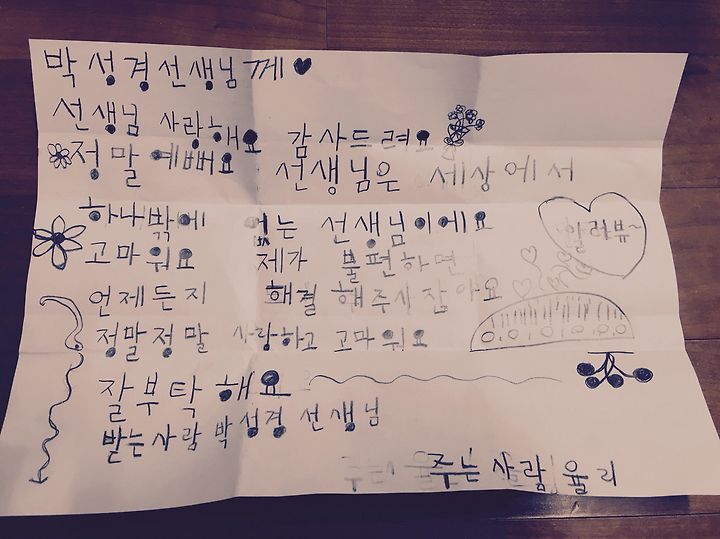 박성경선생님께♥
선생님 사랑해요 감사드려요
정말 예뻐요 선생님은 세상에서
하나밖에 없는 선생님이에요
고마워요 제가 불편하면
알라뷰~
언제든지 해결 해주사잖아요
정말정말 사랑하고 고마워요
잘부탁해요
받는사람 박성경 선생님
주는사람 율리